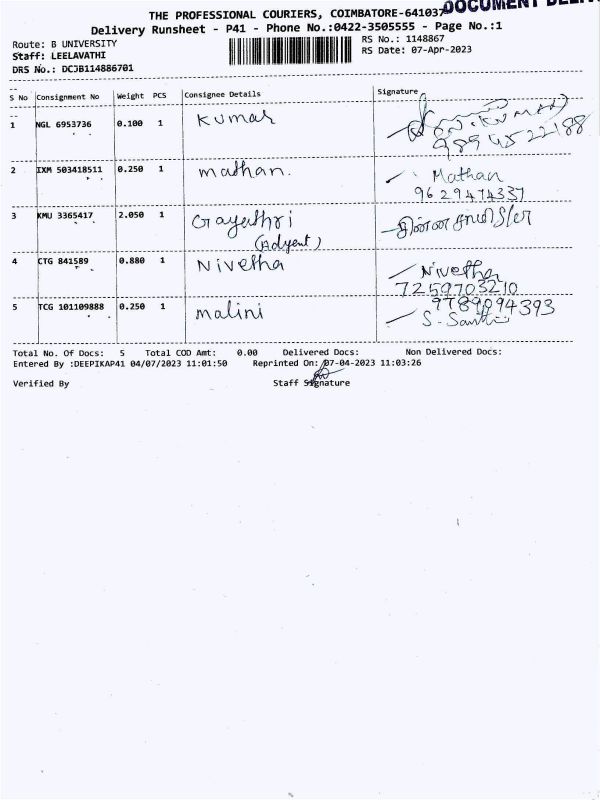 DOCUMENT
THE PROFESSIONAL COURIERS, COIMBATORE-641037
Delivery Runsheet - P41 - Phone No.:0422-3505555 - Page No.:1
Route: B UNIVERSITY
RS No.: 1148867
Staff: LEELAVATHI
RS Date: 07-Apr-2023
DRS No.: DCJB114886701
S No Consignment No Weight PCS Consignee Details Signature
1 NGL 6953736 0.100 1 Kumar
2 IXM 503418511 0.250 1 mathan. Mathan
9629474337
3 KMU 3365417 2.050 1 Gayathri
(Adyent)
4 CTG 841589 0.880 1 Nivetha Nivetha
7259703210
5 TCG 101109888 0.250 1 malini 9789094393
S. Santhi
Total No. Of Docs: 5 Total COD Amt: 0.00 Delivered Docs: Non Delivered Docs:
Entered By :DEEPIKAP41 04/07/2023 11:01:50 Reprinted On: 07-04-2023 11:03:26
Verified By Staff Signature